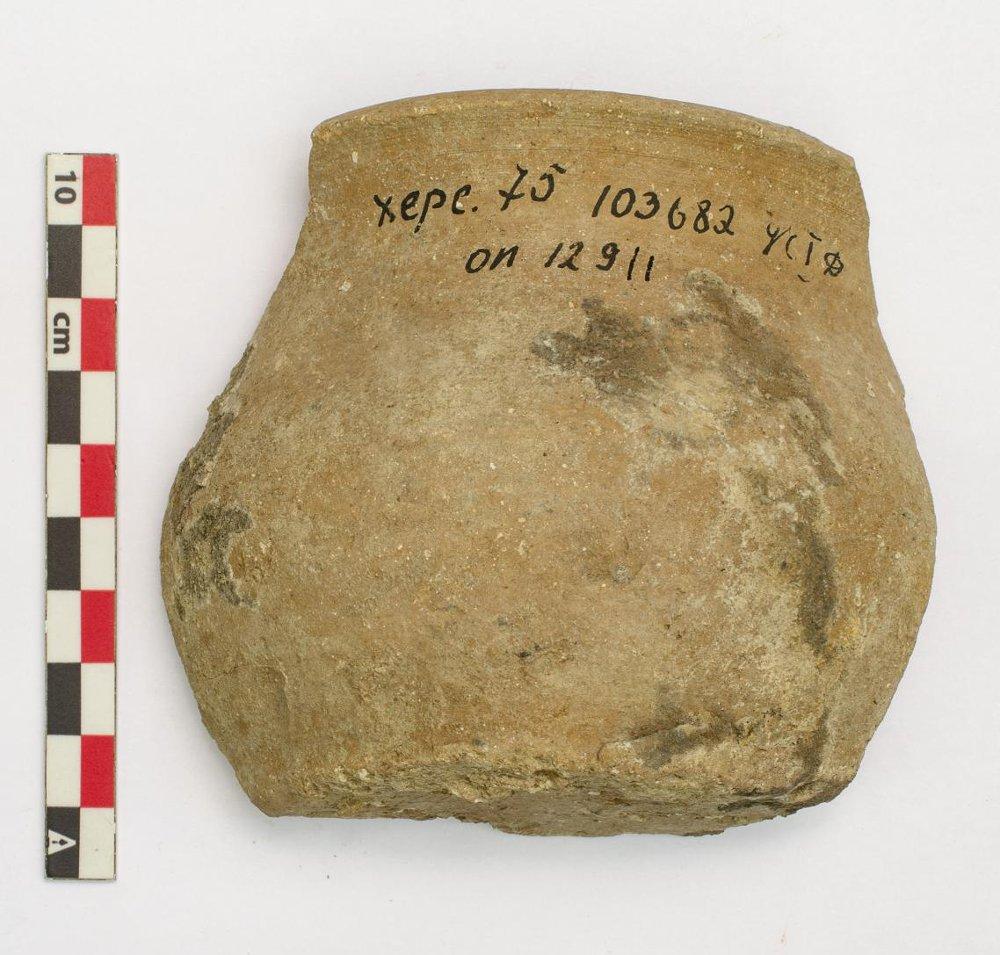 10
cm
A
херс. 75 103682
оп 12911